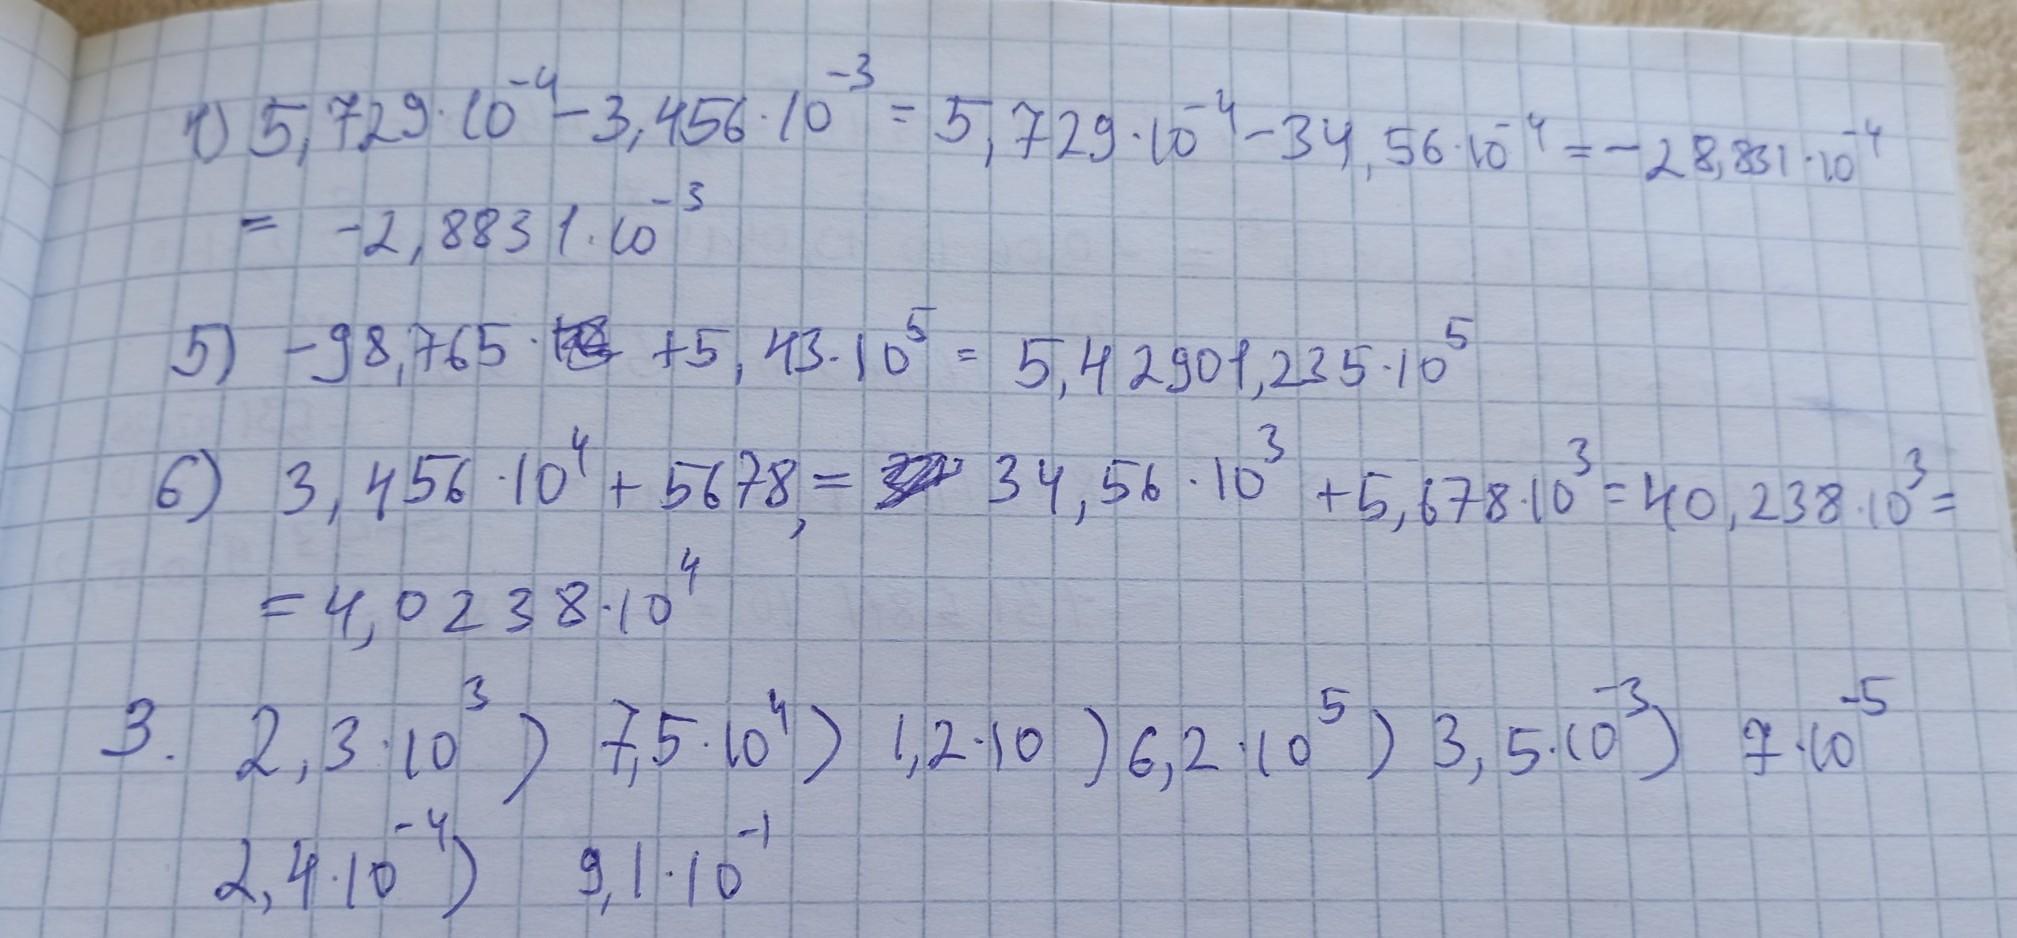 1) 5,729·10⁻⁴ – 3,456·10⁻³ = 5,729·10⁻⁴ – 34,56·10⁻⁴ = –28,831·10⁻⁴
= –2,8831·10⁻³
5) –98,765· +5,43·10⁵ = 5,42901,235·10⁵
6) 3,456·10⁴ + 5678, = 34,56·10³ +5,678·10³ = 40,238·10³ =
= 4,0238·10⁴
3. 2,3·10³ ) 7,5·10⁴ ) 1,2·10 ) 6,2·10⁵ ) 3,5·10⁻³ ) 7·10⁻⁵
2,4·10⁻⁴ ) 9,1·10⁻¹